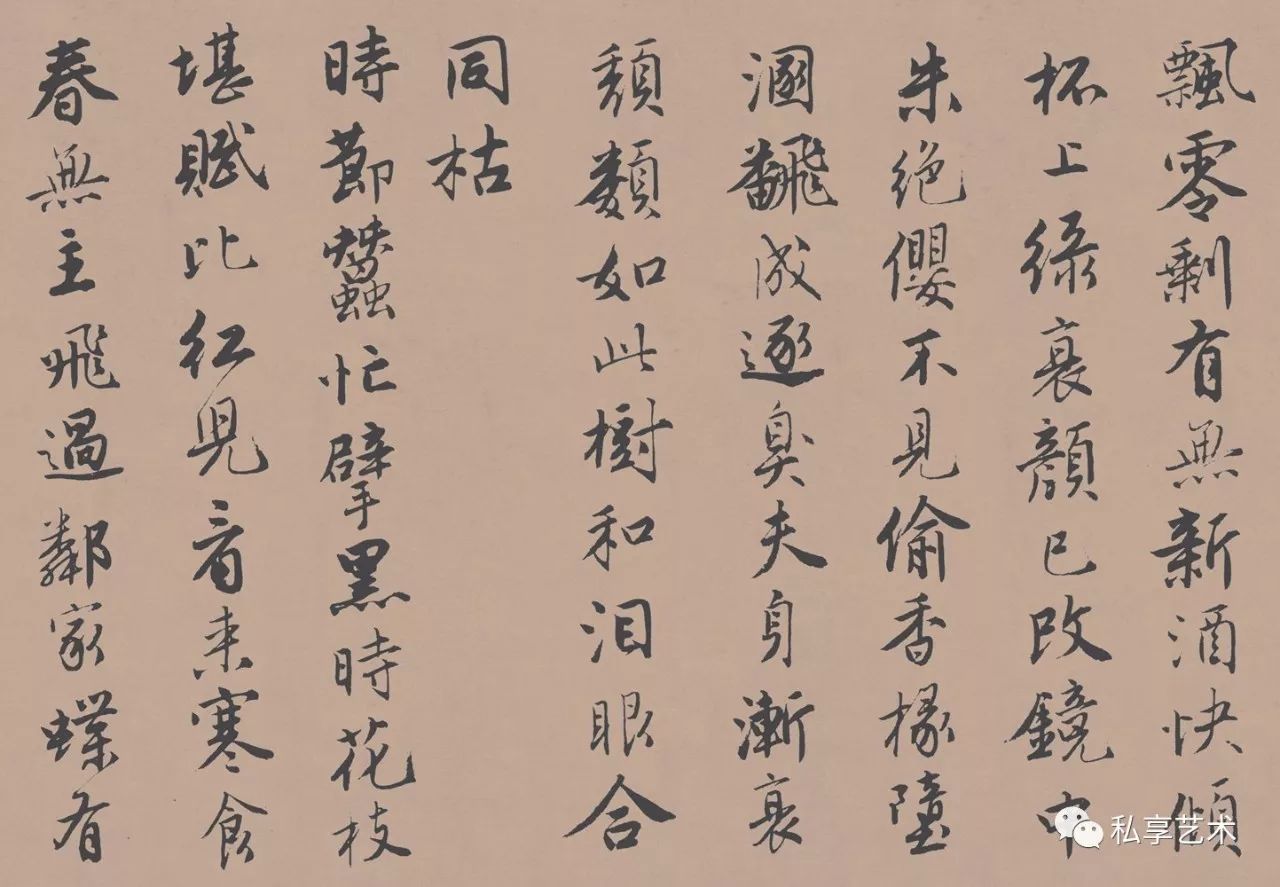 飄零剩有無新酒快傾
杯上綠衰顏已改鏡中
朱絕纓不見偷香椽墮
溷飜成逐臭夫身漸衰
頹類如此樹和泪眼合
同枯
時節蠶忙擘黑時花枝
堪賦比紅兒看來寒食
春無主飛過鄰家蝶有
私享艺术